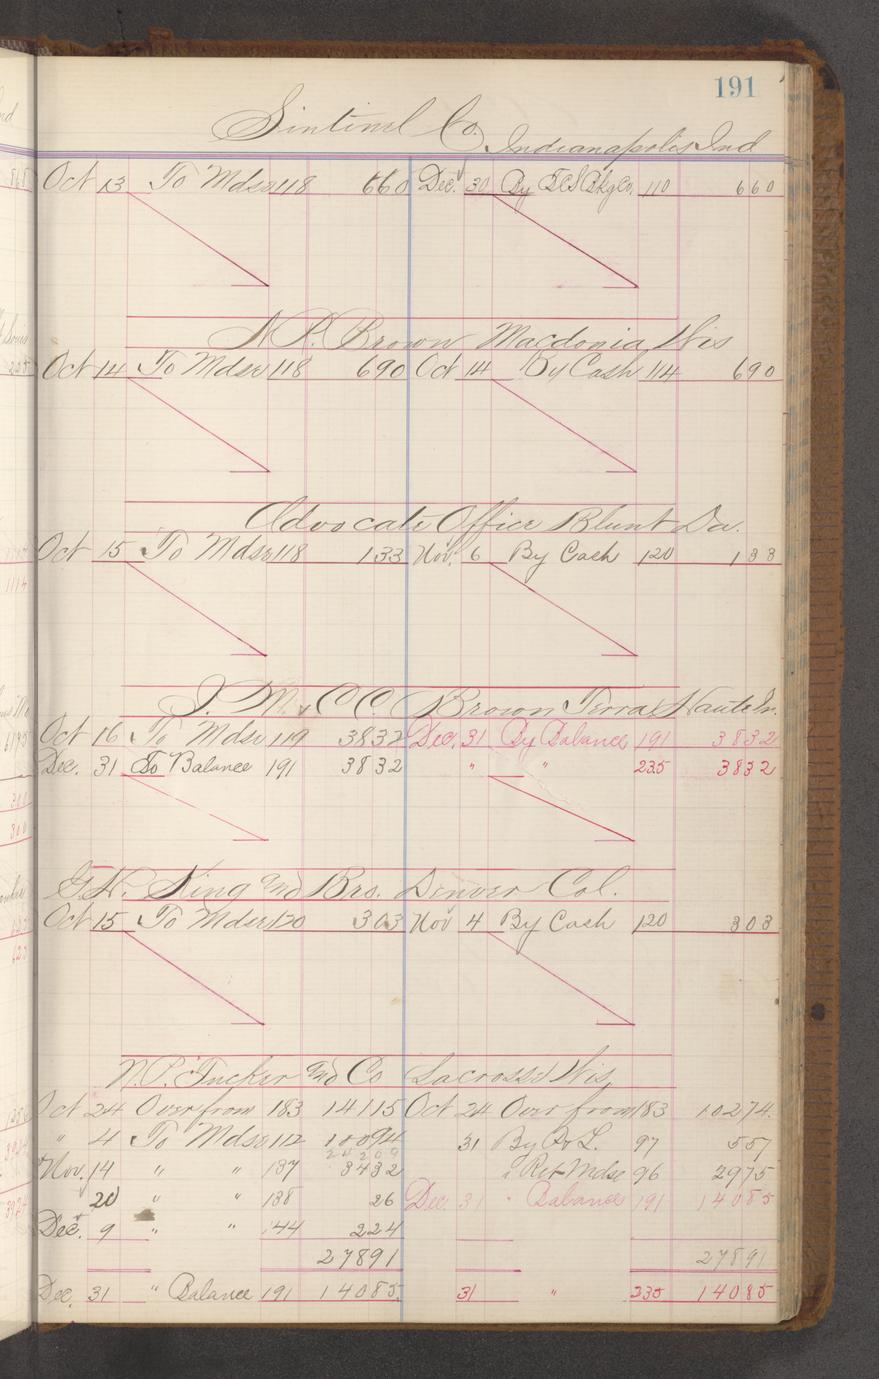 191
Sintinel Co. Indianapolis Ind
Oct 13 To Mdse 118 660 Dec. 30 By 110 660
N.P. Brown Macdonia Wis
Oct 14 To Mdse 118 690 Oct 14 By Cash 114 690
Advocate Office Blunt Da.
Oct 15 To Mdse 118 133 Nov. 6 By Cash 120 133
J. M. & C C. Brown Terra Haute In.
Oct 16 To Mdse 119 3832 Dec. 31 By Balance 191 3832
Dec. 31 To Balance 191 3832 " " 235 3832
G.H. King and Bro. Denver Col.
Oct 15 To Mdse 120 303 Nov 4 By Cash 120 303
N.P. Tucker and Co Lacrosse Wis
Oct 24 Over from 183 14115 Oct 24 Over from 183 10274
" 4 To Mdse 112 10094 31 By P & L. 97 557
24209
Nov. 14 " " 137 3432 " Ret Mdse 96 2975
20 " " 138 26 Dec. 31 " Balance 191 14085
Dec. 9 " " 144 224
27891 27891
Dec. 31 " Balance 191 14085 31 " 235 14085